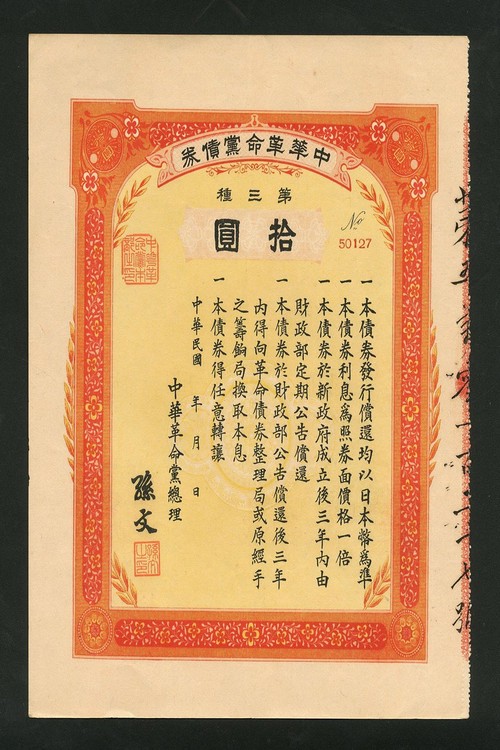 中華革命黨債券
第三種
拾圓
No 50127
一本債券發行償還均以日本幣為準
一本債券利息為照券面價格一倍
一本債券於新政府成立後三年內由
財政部定期公告償還
一本債券於財政部公告償還後三年
內得向革命債券整理局或原經手
之籌餉局換取本息
一本債券得任意轉讓
中華民國 年 月 日
中華革命黨總理
孫文
孫文之印